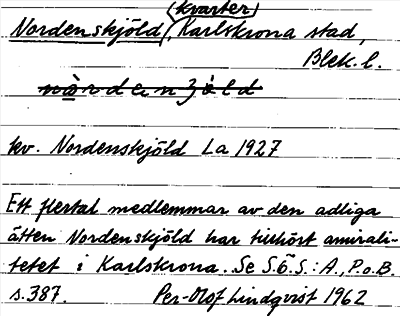 (kvarter)
Nordenskjöld, Karlskrona stad,
Blek. l.
kv. Nordenskjöld La 1927
Ett flertal medlemmar av den adliga
ätten Nordenskjöld har tillhört amirali-
tetet i Karlskrona. Se S.Ö.S.: A., P.o.B.
s. 387. Per-Olof Lindqvist 1962